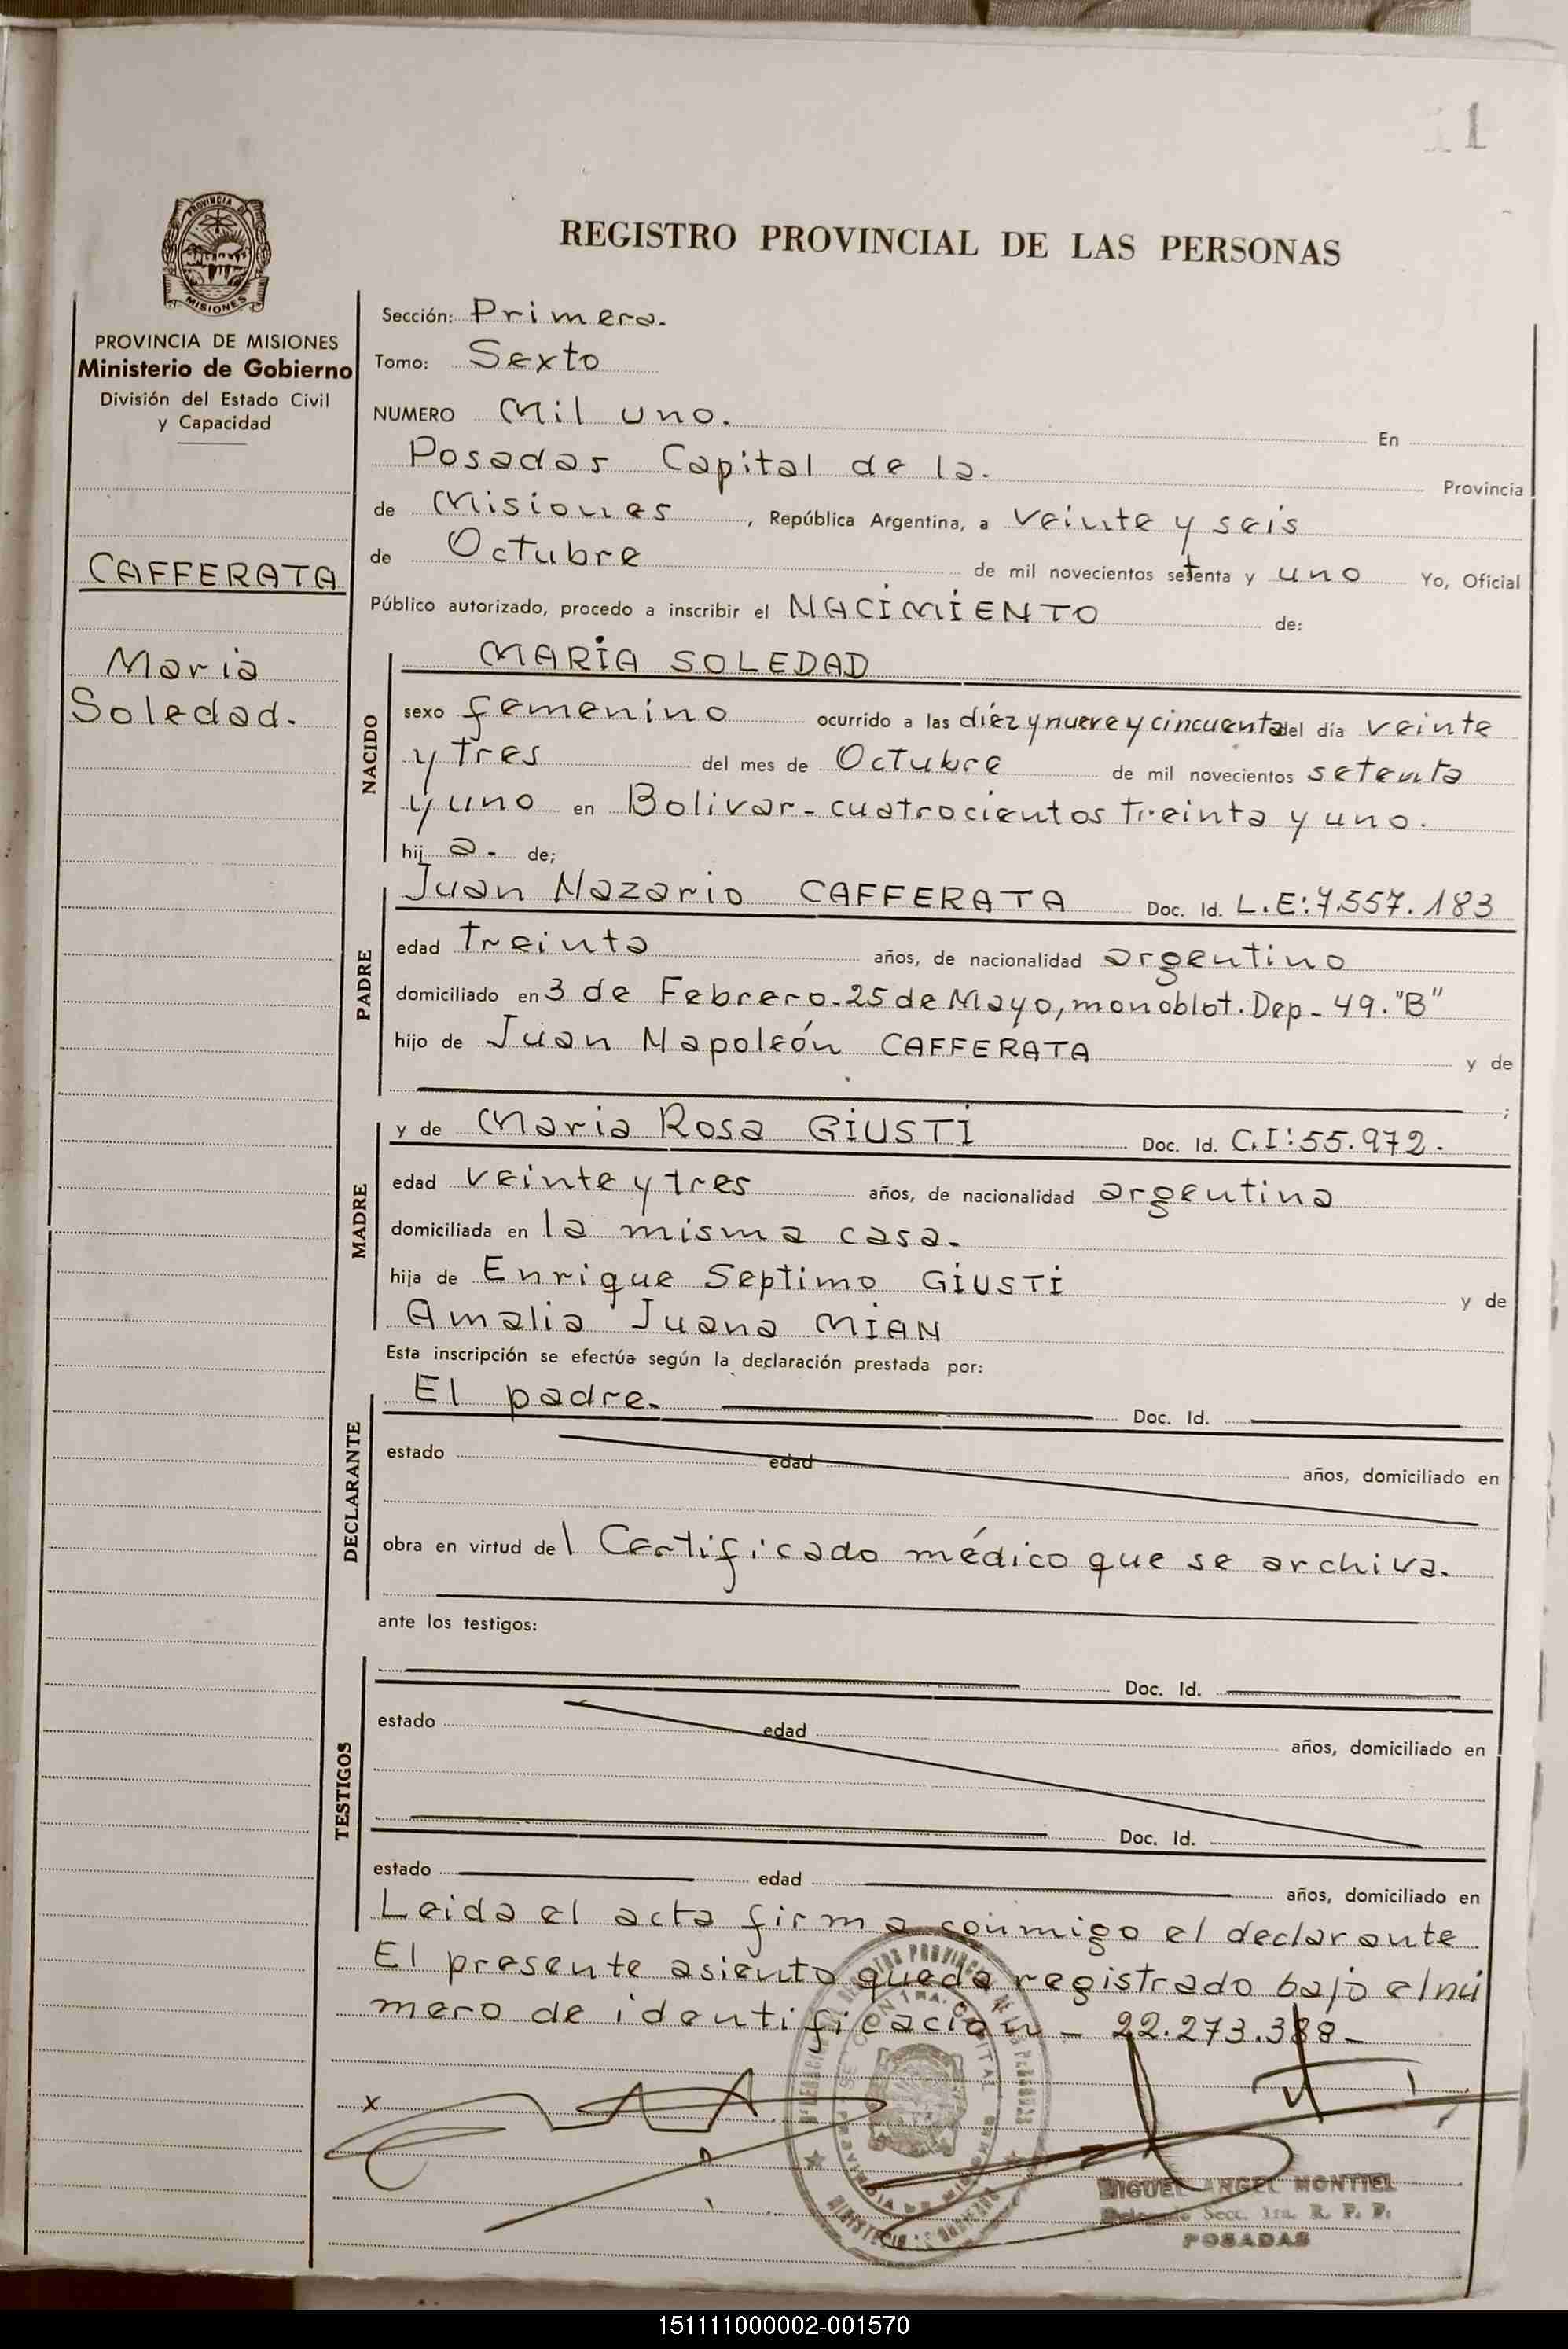 1
REGISTRO PROVINCIAL DE LAS PERSONAS
PROVINCIA DE
MISIONES
PROVINCIA DE MISIONES
Ministerio de Gobierno
División del Estado Civil
y Capacidad
CAFFERATA
Maria
Soledad.
Sección: Primera.
Tomo: Sexto
NUMERO Mil uno. En
Posadas Capital de la. Provincia
de Misiones, República Argentina, a veinte y seis
de Octubre de mil novecientos setenta y uno Yo, Oficial
Público autorizado, procedo a inscribir el NACIMIENTO de:
NACIDO
MARIA SOLEDAD
sexo femenino ocurrido a las diéz y nueve y cincuenta del día veinte
y tres del mes de Octubre de mil novecientos setenta
y uno en Bolivar - cuatrocientos treinta y uno.
hij a. de;
PADRE
Juan Nazario CAFFERATA Doc. Id. L.E: 7.557.183
edad treinta años, de nacionalidad argentino
domiciliado en 3 de Febrero - 25 de Mayo, monoblot. Dep - 49. "B"
hijo de Juan Napoleón CAFFERATA y de
;
MADRE
y de Maria Rosa GIUSTI Doc. Id. C.I: 55.972.
edad veinte y tres años, de nacionalidad argentina
domiciliada en la misma casa.
hija de Enrique Septimo GIUSTI y de
Amalia Juana MIAN
Esta inscripción se efectúa según la declaración prestada por:
DECLARANTE
El padre. Doc. Id.
estado edad años, domiciliado en
obra en virtud del Certificado médico que se archiva.
ante los testigos:
TESTIGOS
Doc. Id.
estado edad años, domiciliado en
Doc. Id.
estado edad años, domiciliado en
Leida el acta firma conmigo el declarante
El presente asiento queda registrado bajo el nú
mero de identificación - 22.273.388 -
x
MIGUEL ANGEL MONTIEL
Delegado Secc. 1ra. R. P. P.
POSADAS
151111000002-001570